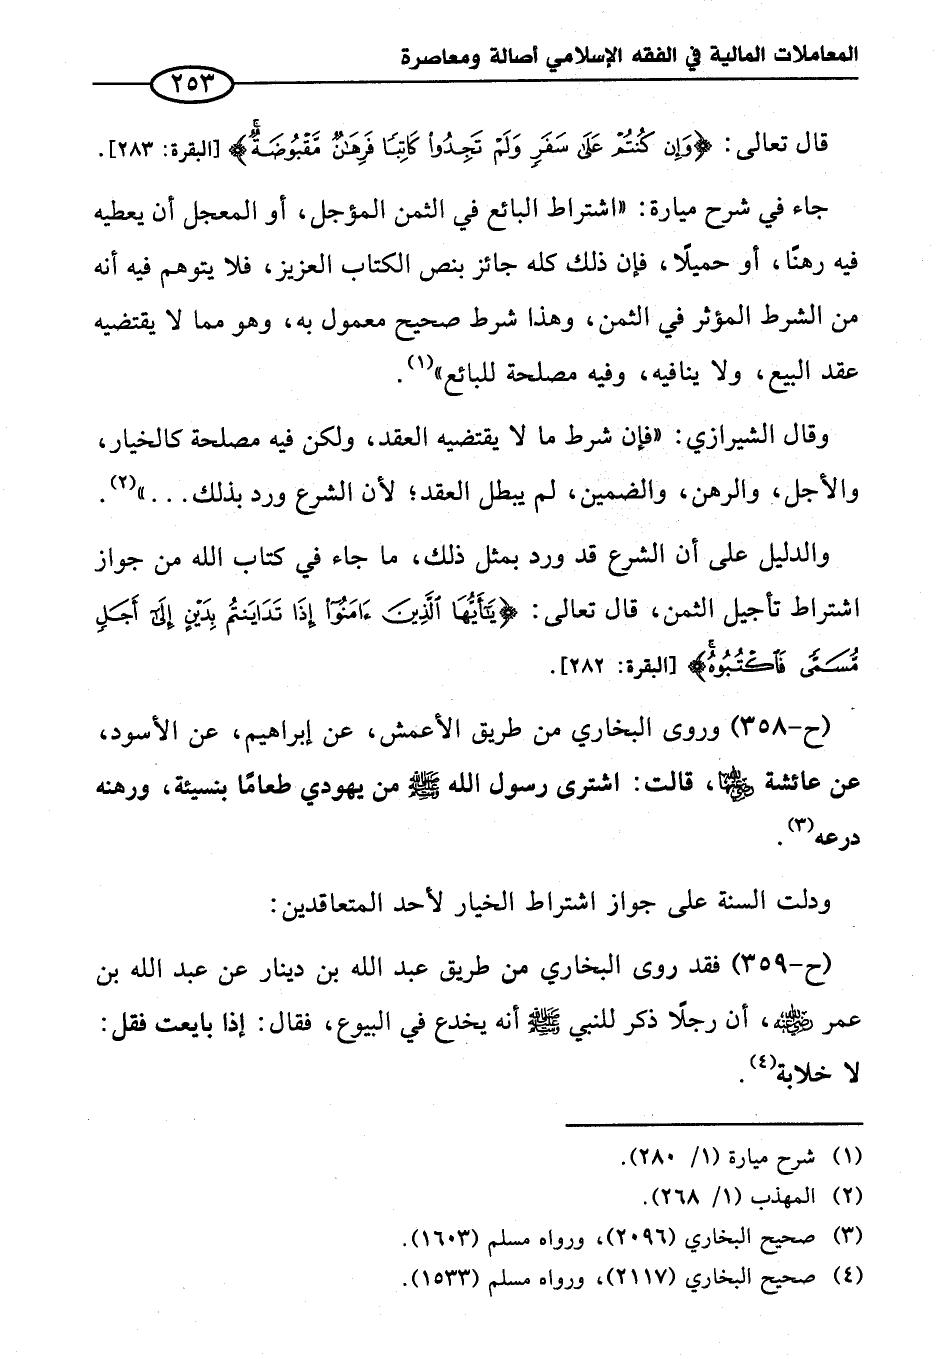 المعاملات المالية في الفقه الإسلامي أصالة ومعاصرة
٢٥٣
قال تعالى: ﴿وَإِن كُنتُمْ عَلَىٰ سَفَرٍ وَلَمْ تَجِدُوا۟ كَاتِبًا فَرِهَـٰنٌ مَّقْبُوضَةٌ﴾ [البقرة: ٢٨٣].
جاء في شرح ميارة: «اشتراط البائع في الثمن المؤجل، أو المعجل أن يعطيه
فيه رهنًا، أو حميلًا، فإن ذلك كله جائز بنص الكتاب العزيز، فلا يتوهم فيه أنه
من الشرط المؤثر في الثمن، وهذا شرط صحيح معمول به، وهو مما لا يقتضيه
عقد البيع، ولا ينافيه، وفيه مصلحة للبائع»(١).
وقال الشيرازي: «فإن شرط ما لا يقتضيه العقد، ولكن فيه مصلحة كالخيار،
والأجل، والرهن، والضمين، لم يبطل العقد؛ لأن الشرع ورد بذلك...»(٢).
والدليل على أن الشرع قد ورد بمثل ذلك، ما جاء في كتاب الله من جواز
اشتراط تأجيل الثمن، قال تعالى: ﴿يَـٰٓأَيُّهَا ٱلَّذِينَ ءَامَنُوٓا۟ إِذَا تَدَايَنتُم بِدَيْنٍ إِلَىٰٓ أَجَلٍ
مُّسَمًّى فَٱكْتُبُوهُ﴾ [البقرة: ٢٨٢].
(ح-٣٥٨) وروى البخاري من طريق الأعمش، عن إبراهيم، عن الأسود،
عن عائشة رضي الله عنها، قالت: اشترى رسول الله ﷺ من يهودي طعامًا بنسيئة، ورهنه
درعه(٣).
ودلت السنة على جواز اشتراط الخيار لأحد المتعاقدين:
(ح-٣٥٩) فقد روى البخاري من طريق عبد الله بن دينار عن عبد الله بن
عمر رضي الله عنه، أن رجلًا ذكر للنبي ﷺ أنه يخدع في البيوع، فقال: إذا بايعت فقل:
لا خلابة(٤).
(١) شرح ميارة (١/ ٢٨٠).
(٢) المهذب (١/ ٢٦٨).
(٣) صحيح البخاري (٢٠٩٦)، ورواه مسلم (١٦٠٣).
(٤) صحيح البخاري (٢١١٧)، ورواه مسلم (١٥٣٣).